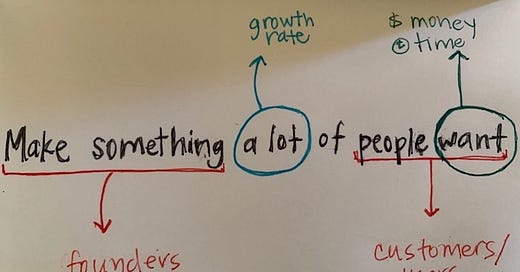 growth
rate
$ money
time
Make something a lot of people want
founders
customers/